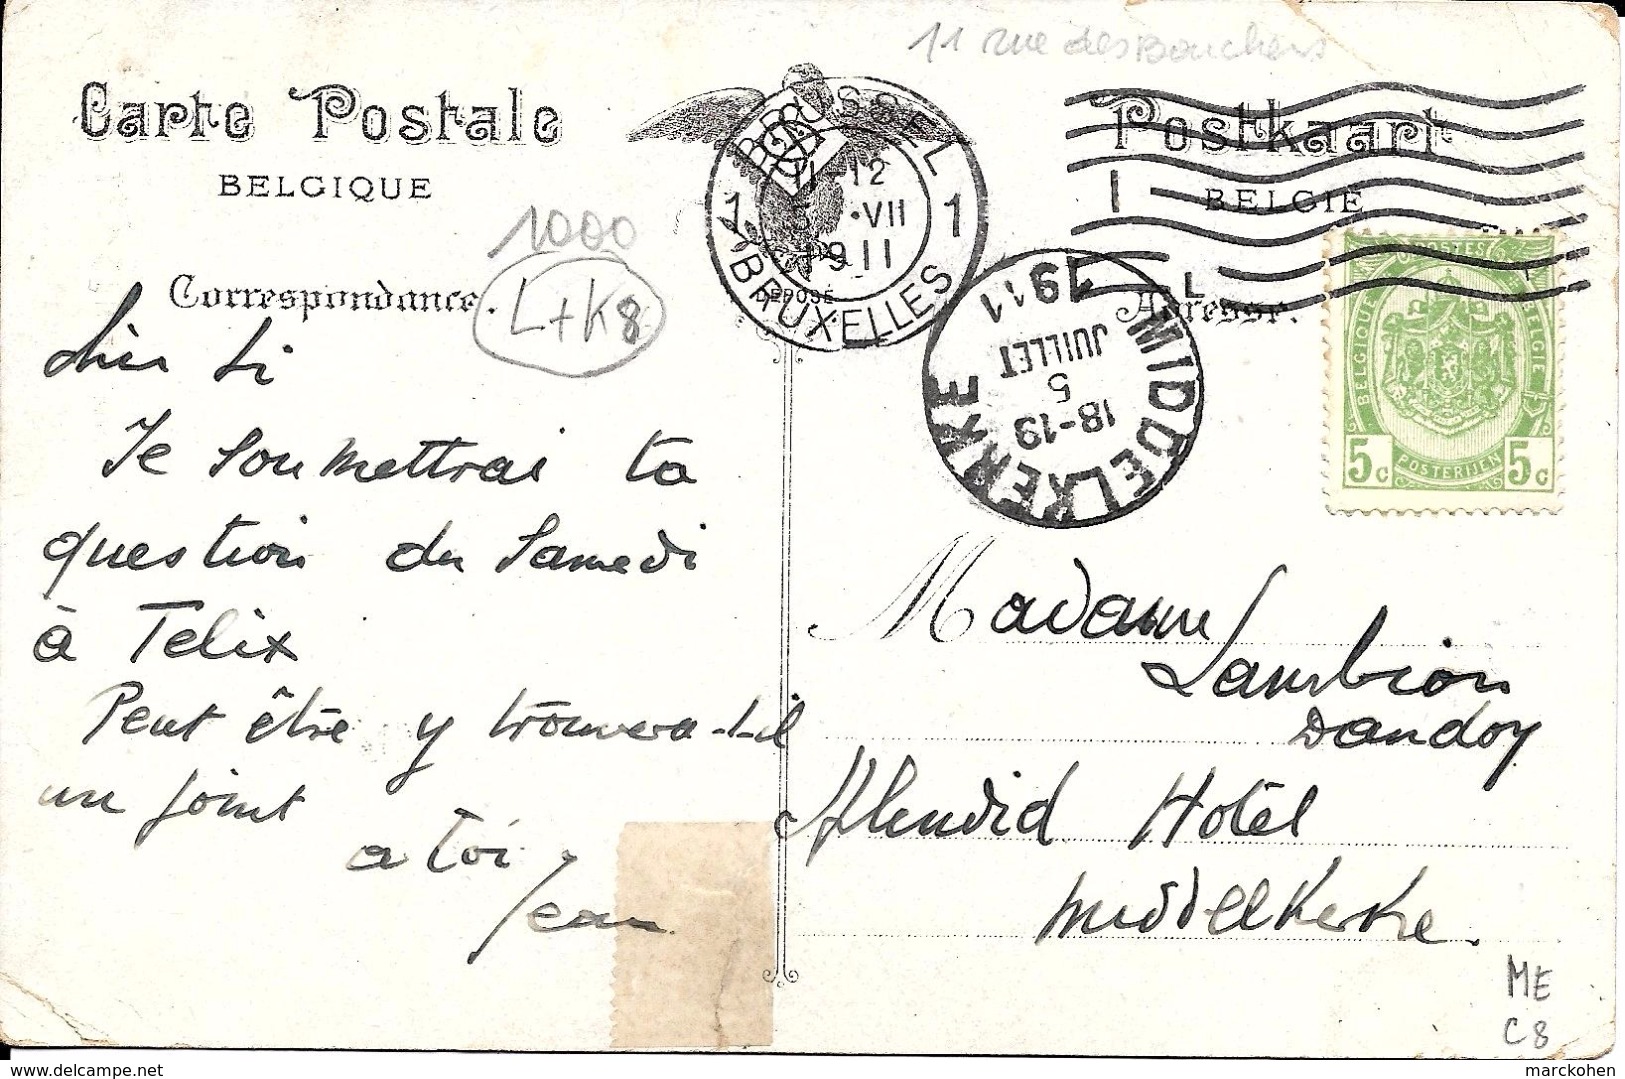 11 rue des Bouchers
Carte Postale
BELGIQUE
Postkaart
BELGIË
BRUSSEL
11-12
5 •VII
1911
1 1
BRUXELLES
DEPOSÉ
1000
L+K8
Correspondance.
Adresse.
MIDDELKERKE
18-19
5
JUILLET
1911
POSTES
BELGIQUE
BELGIE
POSTERIJEN
5c 5c
cher Li
Je soumettrai ta
question du Samedi
à Felix
Peut être y trouvera-t-il
un joint
a toi
Jean
Madame
Lambion
Dandoy
Splendid Hotêl
Middelkerke.
ME
C8
delcampe.net
marckohen